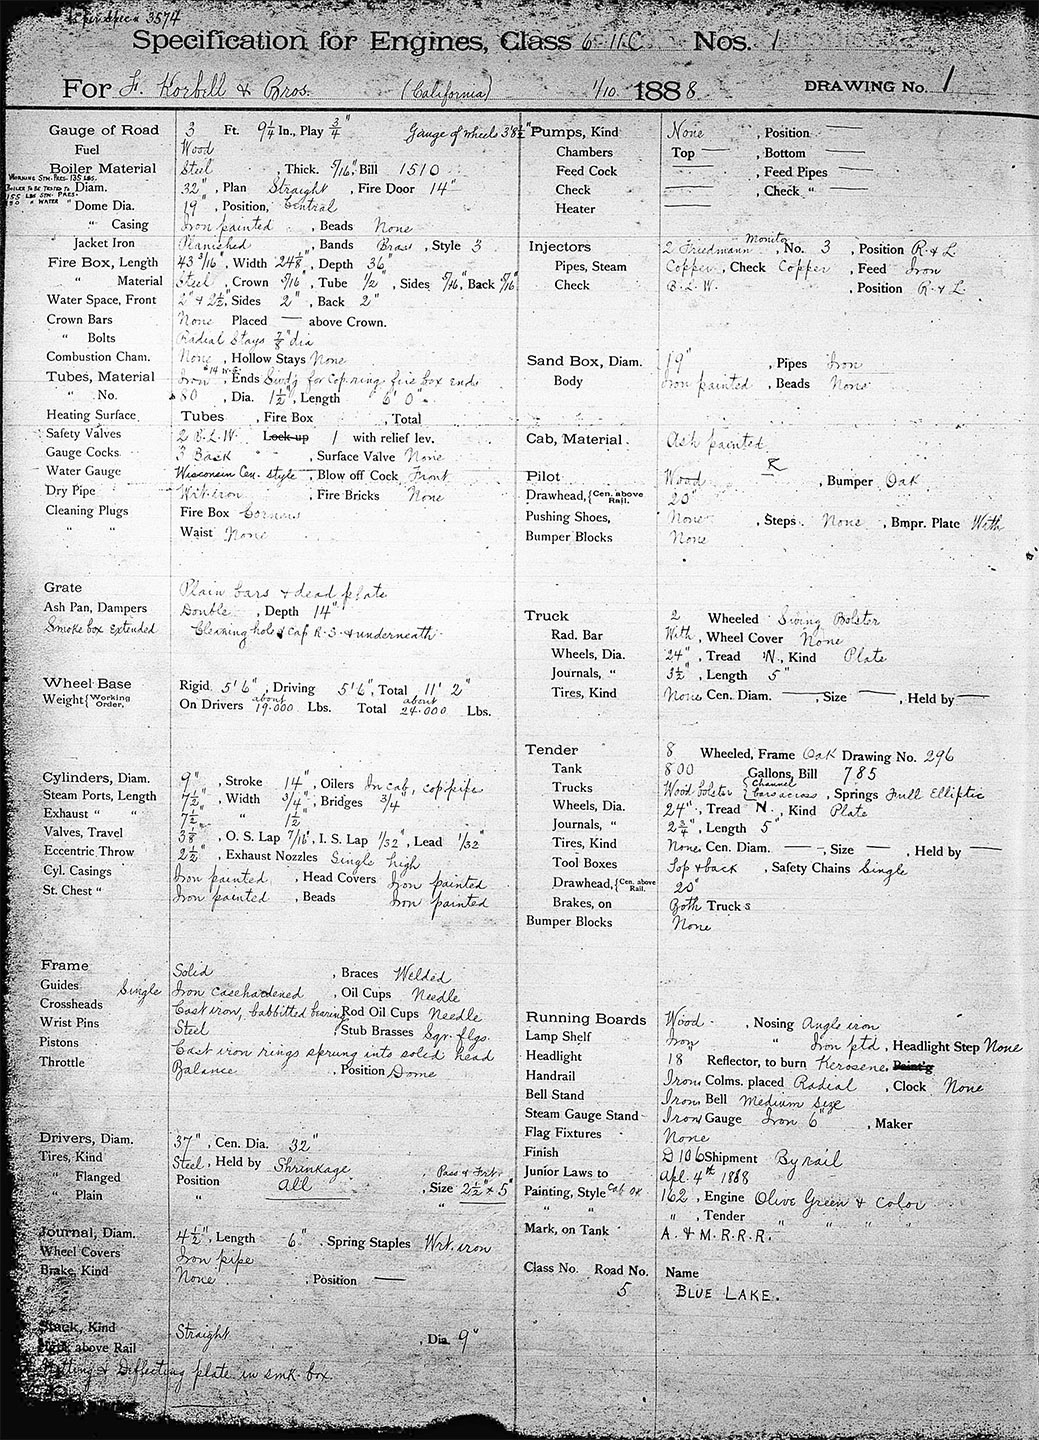 Spec 3574
Specification for Engines, Class 6-11C Nos. 1
For F. Korbell & Bros. (California) 1/10 1888 DRAWING No. 1
Gauge of Road 3 Ft. 9¼ In., Play ¾" Gauge of wheels 3'8½"
Fuel Wood
Boiler Material Steel, Thick. 5/16," Bill 1510
WORKING STM. PRES. 135 LBS.
BOILER TO BE TESTED TO
155 LBS STM. PRES.
180 " WATER "
Diam. 32", Plan Straight, Fire Door 14"
Dome Dia. 19", Position, Central
" Casing Iron painted, Beads None
Jacket Iron Planished, Bands Brass, Style 3
Fire Box, Length 43 3/16", Width 24⅛", Depth 36"
" Material Steel, Crown 5/16", Tube 1/2", Sides 5/16", Back 5/16"
Water Space, Front 2" & 2½", Sides 2", Back 2"
Crown Bars None Placed — above Crown.
" Bolts Radial Stays ⅞" dia
Combustion Cham. None, Hollow Stays None
Tubes, Material Iron #14 W.G., Ends Swd'g for cop. ring fire box end
" No. 80, Dia. 1½", Length 6' 0".
Heating Surface Tubes, Fire Box, Total
Safety Valves 2 B.L.W. Lock-up 1 with relief lev.
Gauge Cocks 3 Back " ", Surface Valve None
Water Gauge Wisconsin Cen. style, Blow off Cock Front
Dry Pipe Wrt iron, Fire Bricks None
Cleaning Plugs Fire Box Corners
" " Waist None
Grate Plain bars & dead plate
Ash Pan, Dampers Double, Depth 14"
Smoke box extended Cleaning hole & cap R.S. & underneath
Wheel Base Rigid. 5' 6", Driving 5' 6", Total 11' 2"
Weight {Working Order,} On Drivers about 19.000 Lbs. Total about 24.000 Lbs.
Cylinders, Diam. 9", Stroke 14", Oilers In cab, cop pipe
Steam Ports, Length 7½", Width 3/4", Bridges 3/4
Exhaust " " 7½" " 1½"
Valves, Travel 3⅛", O. S. Lap 7/16", I. S. Lap 1/32", Lead 1/32"
Eccentric Throw 2½", Exhaust Nozzles Single high
Cyl. Casings Iron painted, Head Covers Iron painted
St. Chest " Iron painted, Beads Iron painted
Frame Solid, Braces Welded
Guides Single Iron casehardened, Oil Cups Needle
Crossheads Cast iron, babbitted bearing, Rod Oil Cups Needle
Wrist Pins Steel, Stub Brasses Sqr. flgs.
Pistons Cast iron rings sprung into solid head
Throttle Balance, Position Dome
Drivers, Diam. 37", Cen. Dia. 32"
Tires, Kind Steel, Held by Shrinkage
" Flanged Position all, Size 2½" x 5"
" Plain " "
Journal, Diam. 4½", Length 6". Spring Staples Wrt. iron
Wheel Covers Iron pipe
Brake, Kind None, Position —
Stack, Kind Straight, Dia. 9"
Hght. above Rail
Netting & Deflecting plate in smk. box
Pumps, Kind None, Position —
Chambers Top —, Bottom —
Feed Cock —, Feed Pipes —
Check —, Check " —
Heater —
Injectors 2 Friedmann Monitor, No. 3, Position R & L
Pipes, Steam Copper, Check Copper, Feed Iron
Check B.L.W., Position R & L.
Sand Box, Diam. 19", Pipes Iron
Body Iron painted, Beads None
Cab, Material Ash painted
Pilot Wood, Bumper Oak
Drawhead, {Cen. above Rail. 20"
Pushing Shoes, None, Steps. None, Bmpr. Plate With
Bumper Blocks None
Truck 2 Wheeled Swing Bolster
Rad. Bar With, Wheel Cover None
Wheels, Dia. 24", Tread N., Kind Plate
Journals, " 3½", Length 5"
Tires, Kind None Cen. Diam. —, Size —, Held by —
Tender 8 Wheeled, Frame Oak Drawing No. 296
Tank 800 Gallons, Bill 785
Trucks Wood bolster {Channel bars across, Springs Full Elliptic
Wheels, Dia. 24", Tread N, Kind Plate
Journals, " 2¾", Length 5"
Tires, Kind None, Cen. Diam. —, Size —, Held by —
Tool Boxes Top & back, Safety Chains Single
Drawhead, {Cen. above Rail. 20"
Brakes, on Both Trucks
Bumper Blocks None
Running Boards Wood, Nosing Angle iron
Lamp Shelf Iron " Iron ptd, Headlight Step None
Headlight 18 Reflector, to burn Kerosene, Paint'g
Handrail Iron, Colms. placed Radial, Clock None
Bell Stand Iron, Bell Medium size
Steam Gauge Stand Iron, Gauge Iron 6", Maker
Flag Fixtures None
Finish D106 Shipment By rail
Junior Laws to Apl. 4th 1888
Painting, Style Cab OK 162, Engine Olive Green & Color
" " ", Tender " " " "
Mark, on Tank A. & M. R. R. R.
Class No. Road No. Name
5 BLUE LAKE.